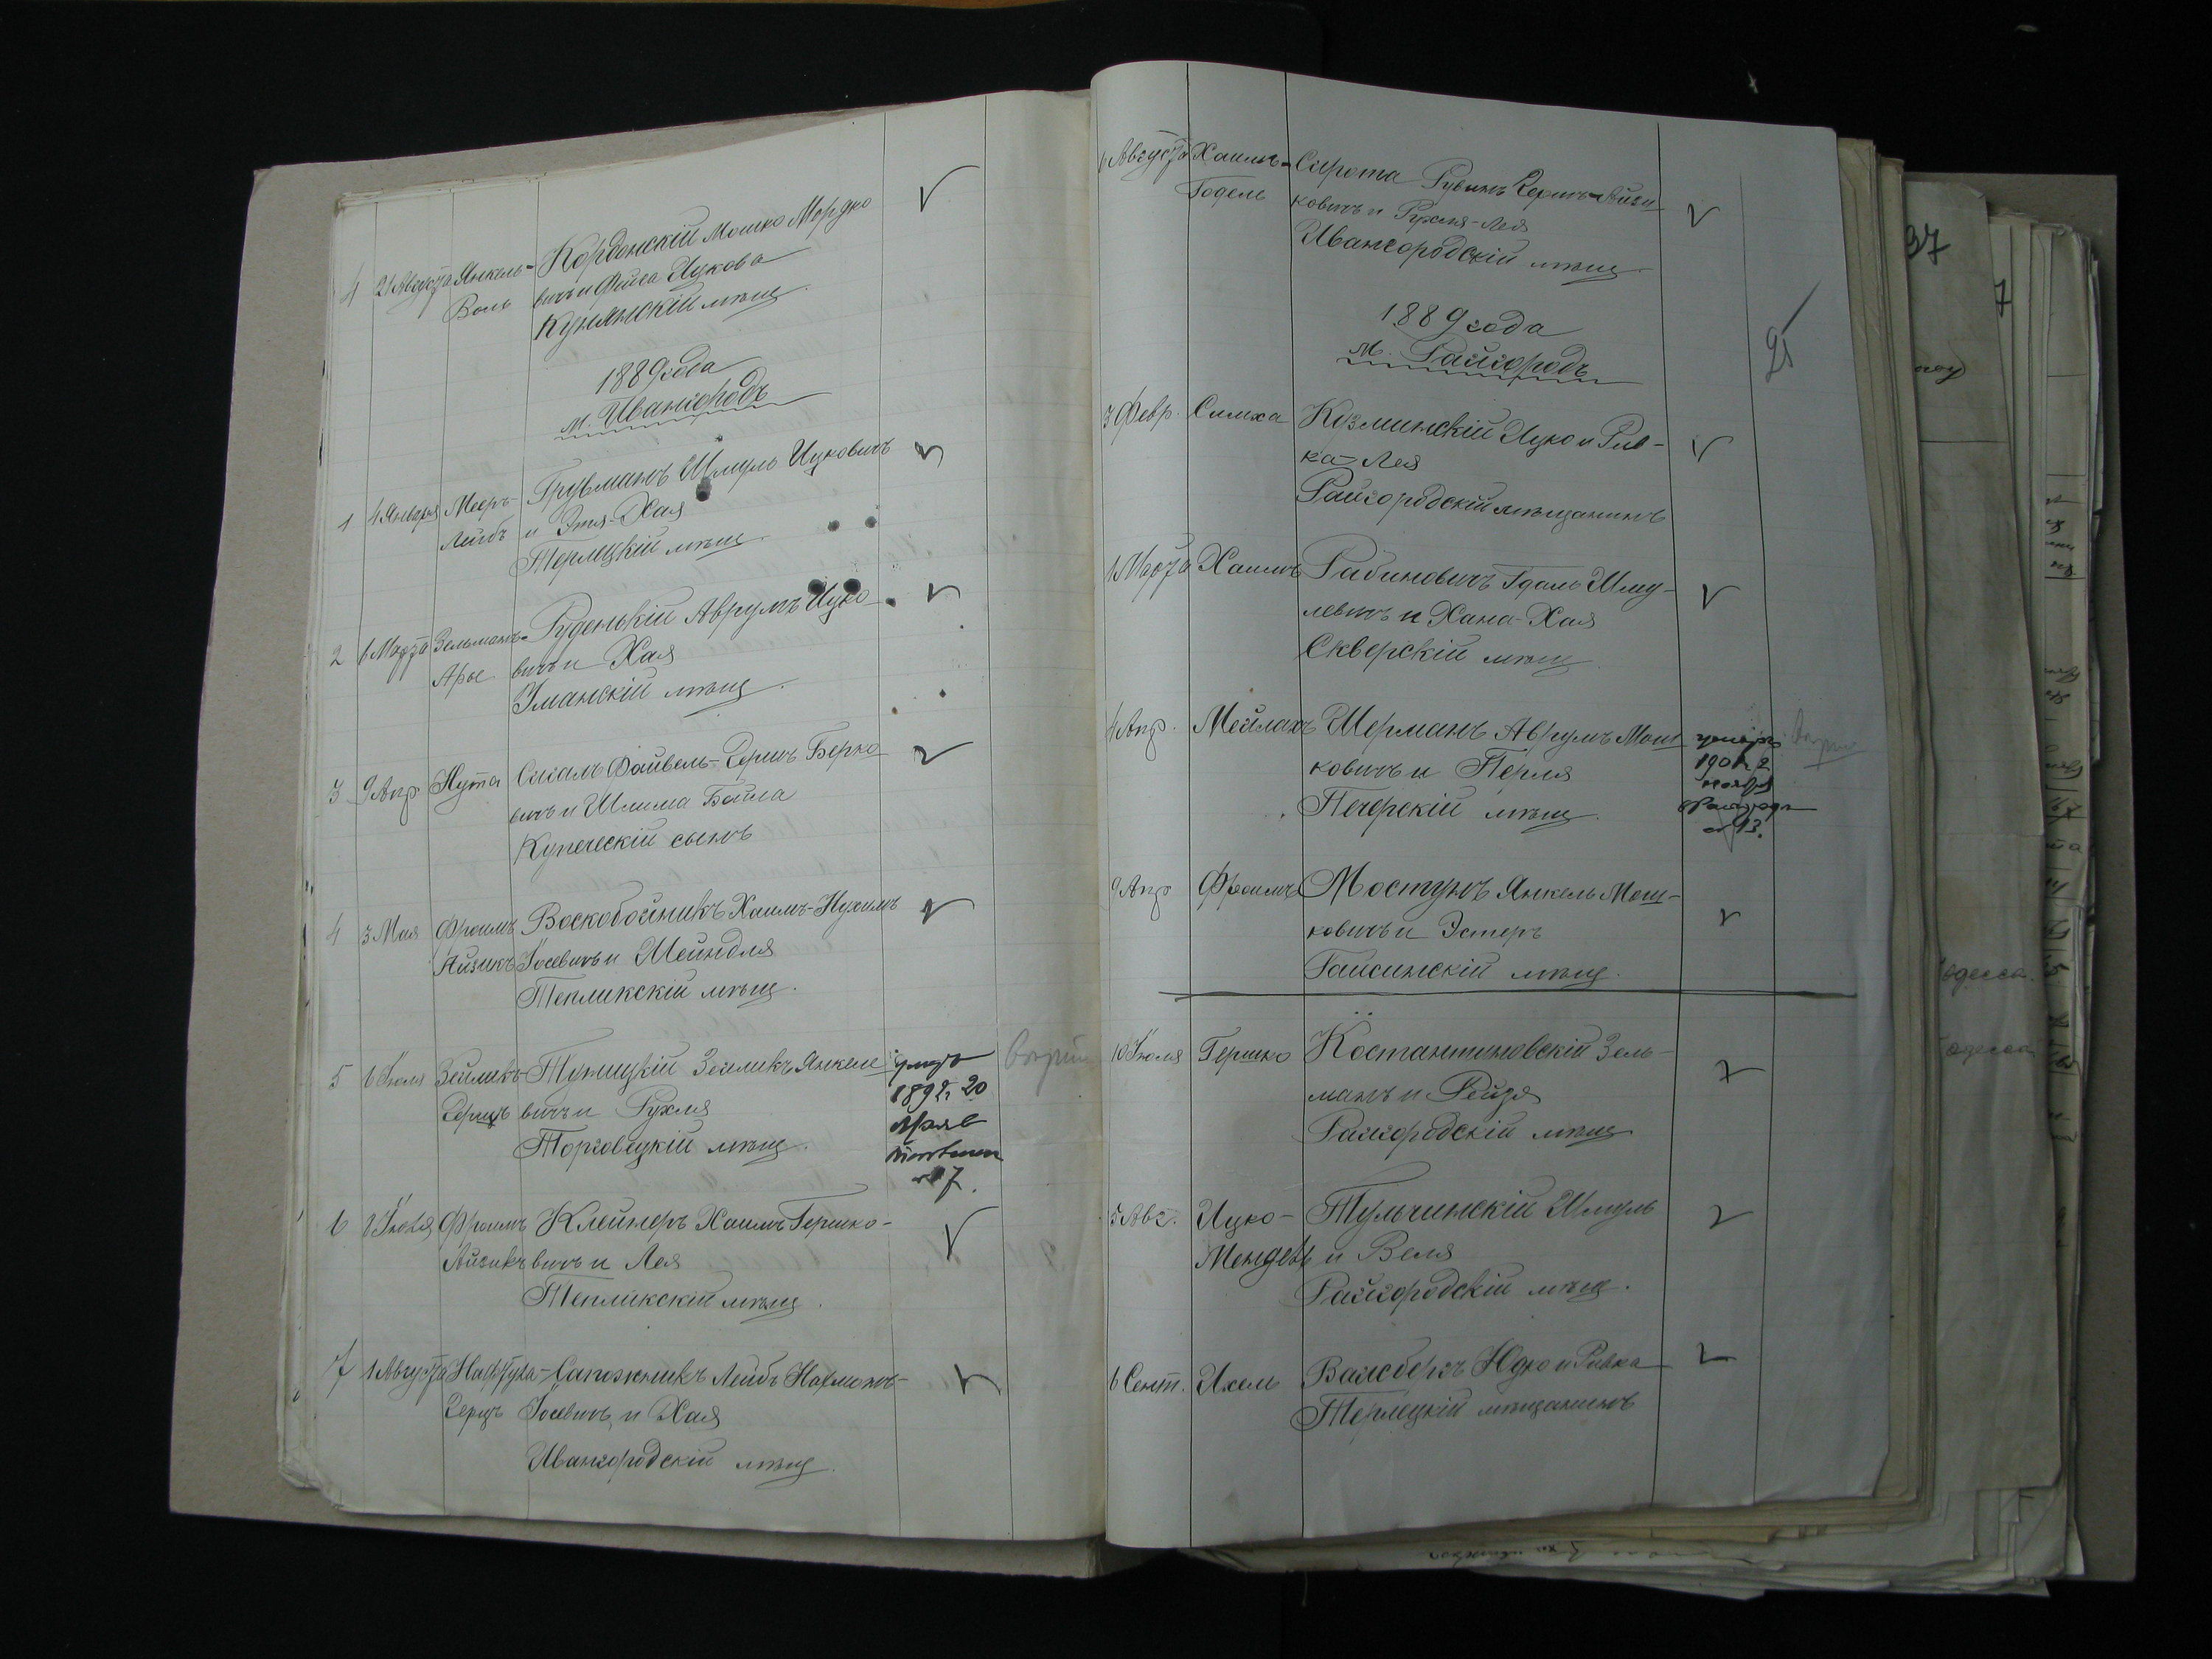 4 21 Августа Янкель- Кордонскій Мошко Мордко
Воль вичъ и Фейга Ицкова
Кунянскій мѣщ.
1889 года
м. Ивангородъ
1 4 Января Мееръ- Трубманъ Шмуль Ицковичъ
Лейбъ и Этя-Хая
Терлецкій мѣщ.
2 6 Марта Зельманъ- Руденькій Аврумъ Ицко
Арье вичъ и Хая
Уманскій мѣщ.
3 9 Апр Нута Сигалъ Файвель-Гершъ Берко
вичъ и Шлима Бейла
Купеческій сынъ
4 3 Мая Фроимъ Воскобойникъ Хаимъ-Нухимъ
Айзикъ Іосевичъ и Шейндля
Тепликскій мѣщ.
5 6 Іюля Зейликъ- Тупицкій Зейликъ Янкеле
Гершъ вичъ и Рухля
Торговицкій мѣщ.
умеръ
1892 г 20
№ 7.
6 8 Іюля Фроимъ Клейнеръ Хаимъ Гершко-
Айзикъ вичъ и Лея
Тепликскій мѣщ.
7 1 Августа Нафтула- Сапожникъ Лейбъ Нахманъ-
Герцъ Іосевичъ и Хая
Ивангородскій мѣщ.
Августа Хаимъ- Сирота Рувинъ Гершъ-Айзи
Годель ковичъ и Рухля-Лея
Ивангородскій мѣщ.
1889 года
м. Райгородъ
25
3 Февр. Симха Козминскій Ицко и Рив-
ка-Лея
Райгородскій мѣщанинъ
1 Марта Хаимъ Рабиновичъ Гдаль Шму-
левичъ и Хана-Хая
Скверскій мѣщ.
4 Апр. Мейлахъ Шерманъ Аврумъ Мош
ковичъ и Перля
Печерскій мѣщ.
умеръ
1901 г. 2
ноября
№ 13.
9 Апр Фроимъ Мостунъ Янкель Мош-
ковичъ и Эстеръ
Гайсинскій мѣщ.
10 Іюля Гершко Костантиновскій Зель-
манъ и Рейзя
Райгородскій мѣщ.
5 Авг. Ицко- Тульчинскій Шмуль
Мендель и Веля
Райгородскій мѣщ.
6 Сент. Ихель Вайсбергъ Юдко и Ривка
Терлецкій мѣщанинъ
37
7
одесса.
одесса